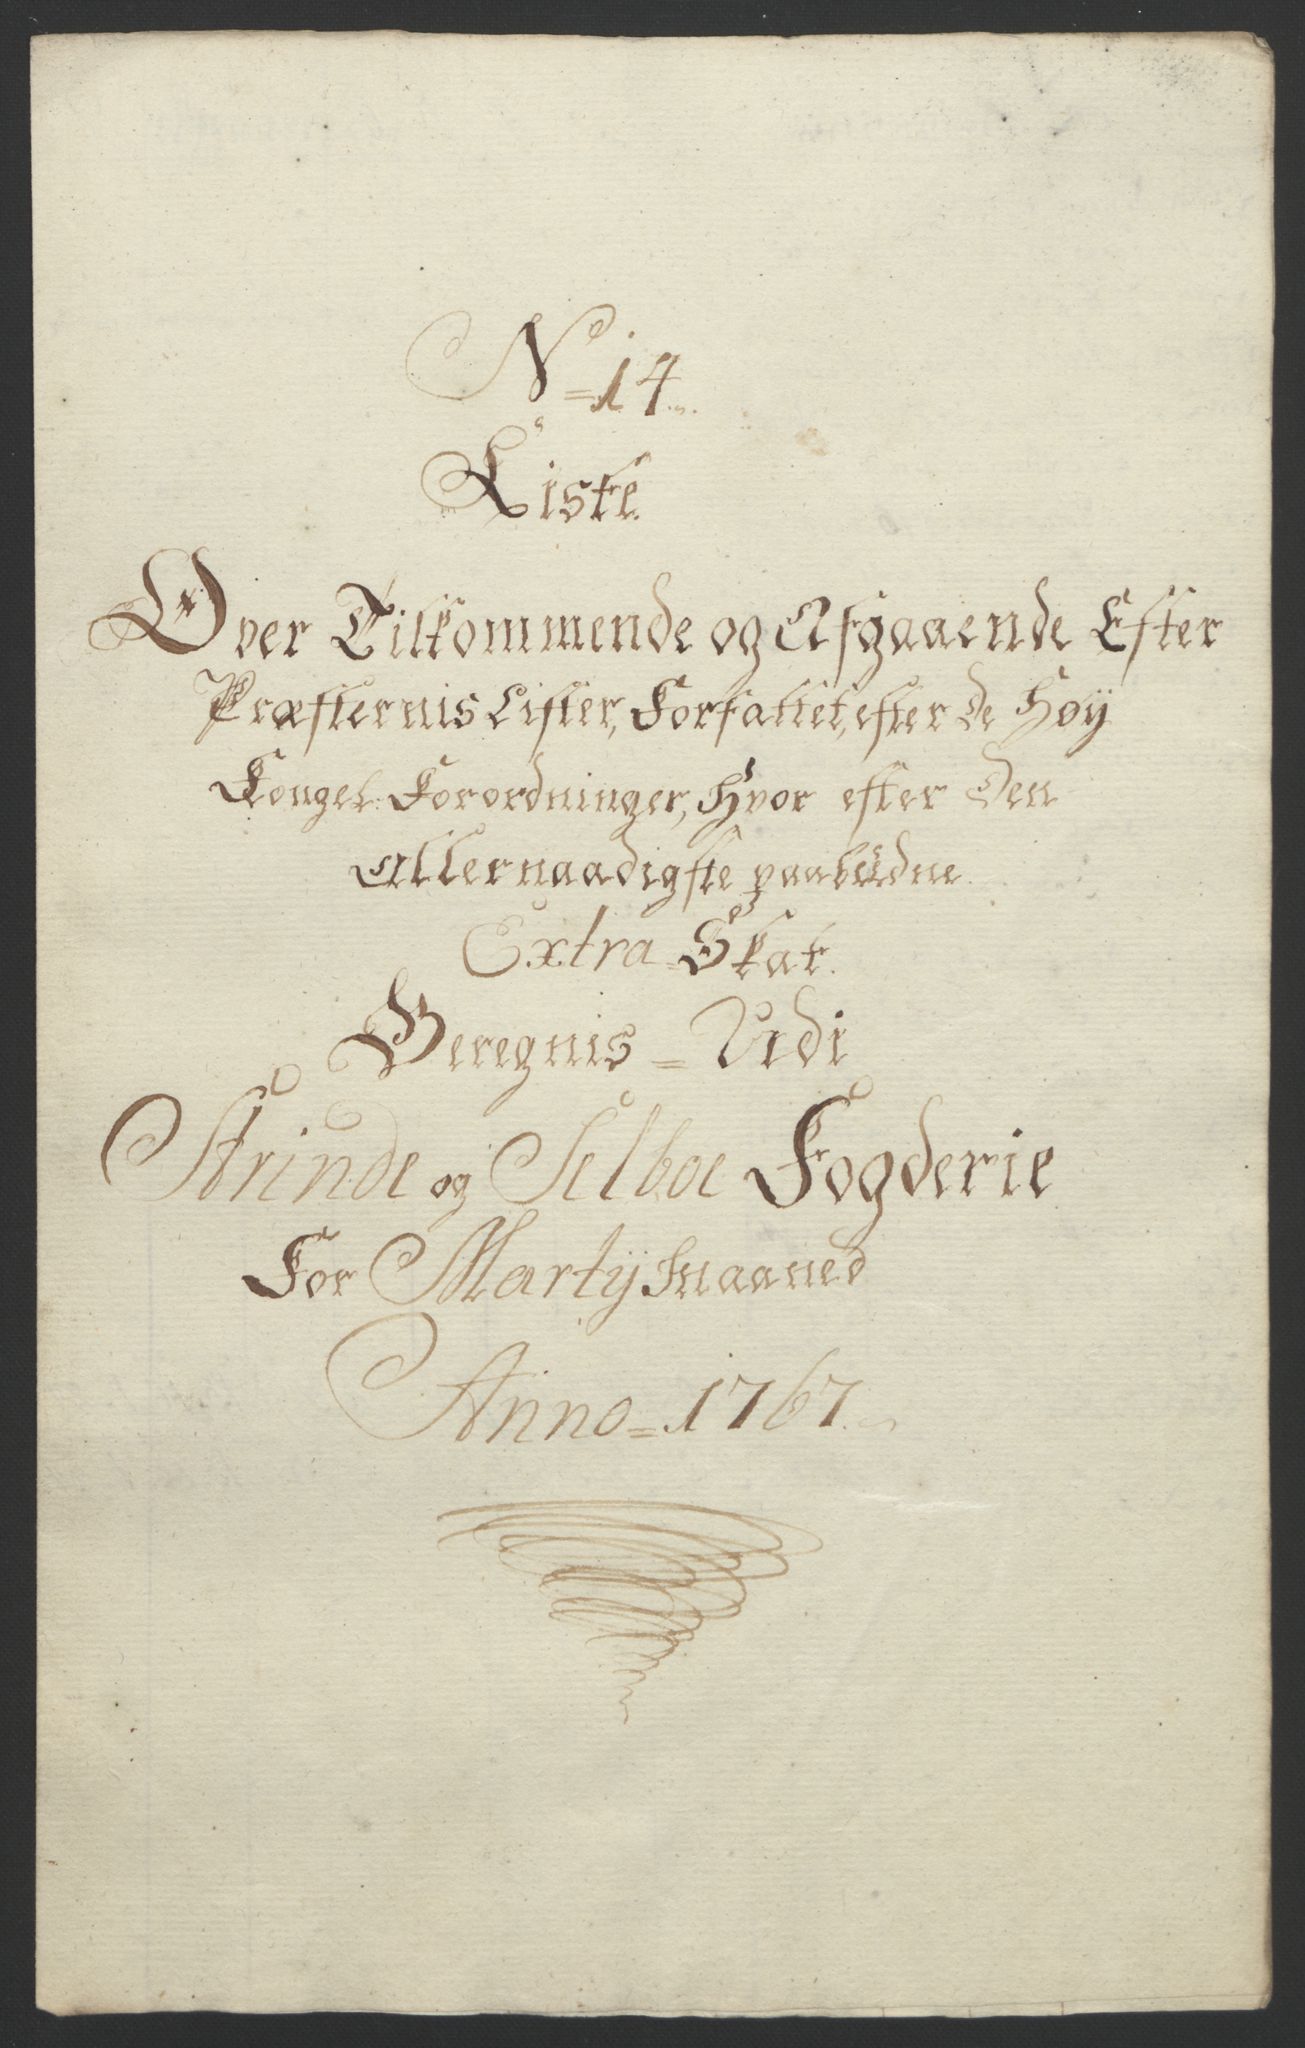 N = 14.
Liste
Over Tilkommende og Afgaaende Efter
Præsternis Lister, Forfattet, efter de Høy
Kongel: Forordninger, Hvor efter Den
Allernaadigste paabudne
Extra = Skat.
Beregnis = Udi
Strinde og Selboe Fogderie
For Martij Maaned
Anno = 1767.